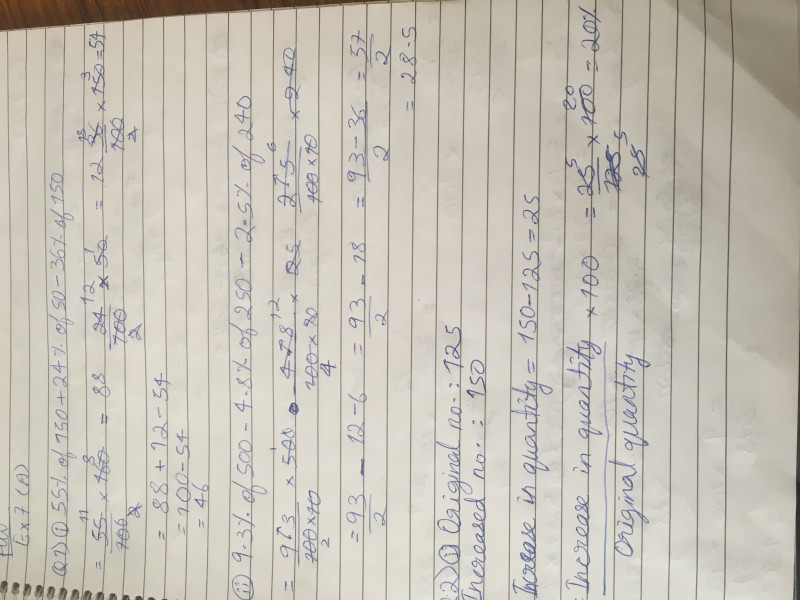 HW
Ex 7 (A)
Q1) i) 55% of 160 + 24% of 50 - 36% of 150
= 55/100 × 160 = 88 24/100 × 50 = 12 36/100 × 150 = 54
= 88 + 12 - 54
= 100 - 54
= 46
ii) 9.3% of 500 - 4.8% of 250 - 2.5% of 240
= 93/100×10 × 500 - 48/100×10 × 250 - 25/100×10 × 240
= 93/2 - 12 - 6 = 93/2 - 18 = 93-36/2 = 57/2
= 28.5
2) i) Original no. : 125
Increased no. : 150
Increase in quantity = 150 - 125 = 25
= Increase in quantity/original quantity × 100 = 25/125 × 100 = 20%